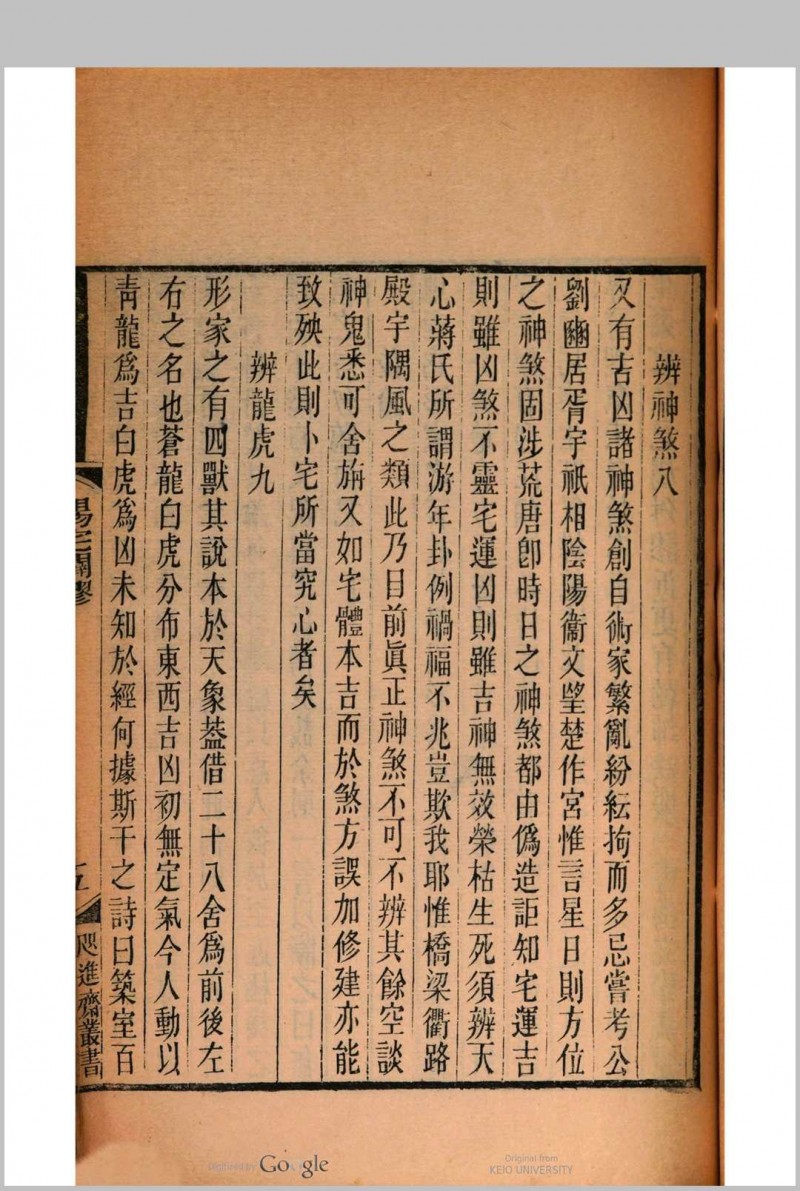 辨神煞八
又有吉凶諸神煞創自術家繁亂紛紜拘而多忌嘗考公
劉豳居胥宇祇相陰陽衞文望楚作宮惟言星日則方位
之神煞固涉荒唐卽時日之神煞都由僞造詎知宅運吉
則雖凶煞不靈宅運凶則雖吉神無效榮枯生死須辨天
心蔣氏所謂游年卦例禍福不兆豈欺我耶惟橋梁衢路
殿宇隅風之類此乃目前眞正神煞不可不辨其餘空談
神鬼悉可舍旃又如宅體本吉而於煞方誤加修建亦能
致殃此則卜宅所當究心者矣
辨龍虎九
形家之有四獸其說本於天象葢借二十八舍爲前後左
右之名也蒼龍白虎分布東西吉凶初無定氣今人動以
靑龍爲吉白虎爲凶未知於經何據斯干之詩曰築室百
陽宅闢謬
五
咫進齋叢書
Digitized by Google
Original from
KEIO UNIVERSITY